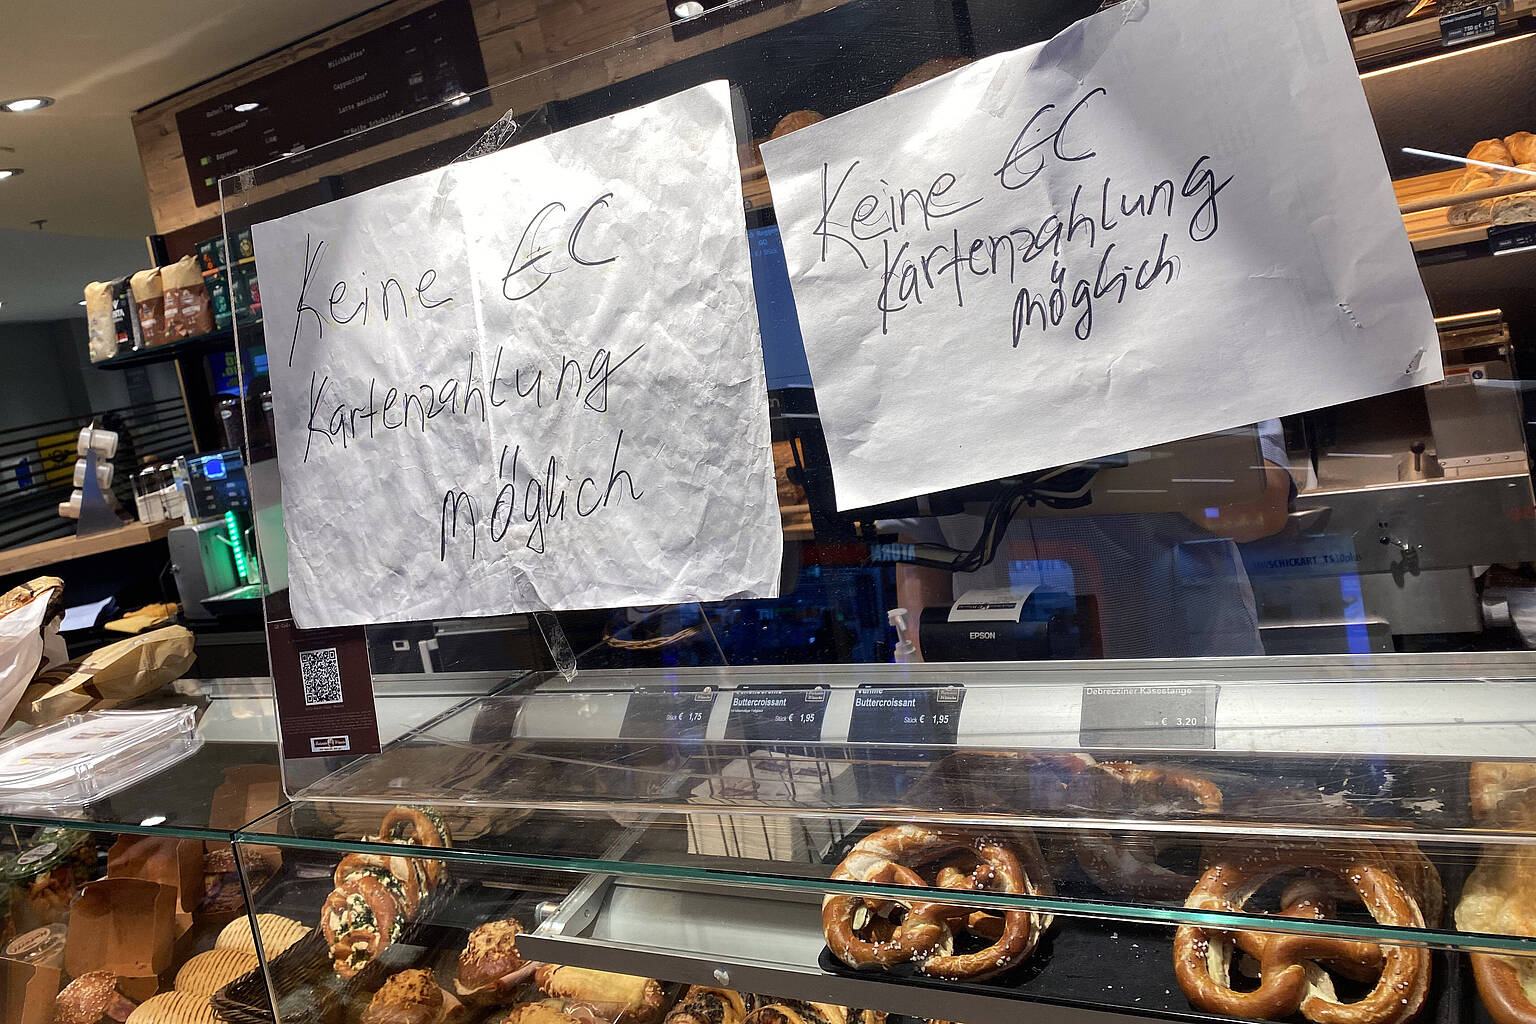 Milchkaffee*
Cappuccino*
Latte macchiato*
Espresso
Keine EC
Kartenzahlung
möglich
Keine EC
Kartenzahlung
möglich
EPSON
Stück € 1,75
Buttercroissant
Stück € 1,95
Buttercroissant
Stück € 1,95
Debrecziner Käsestange
€ 3,20